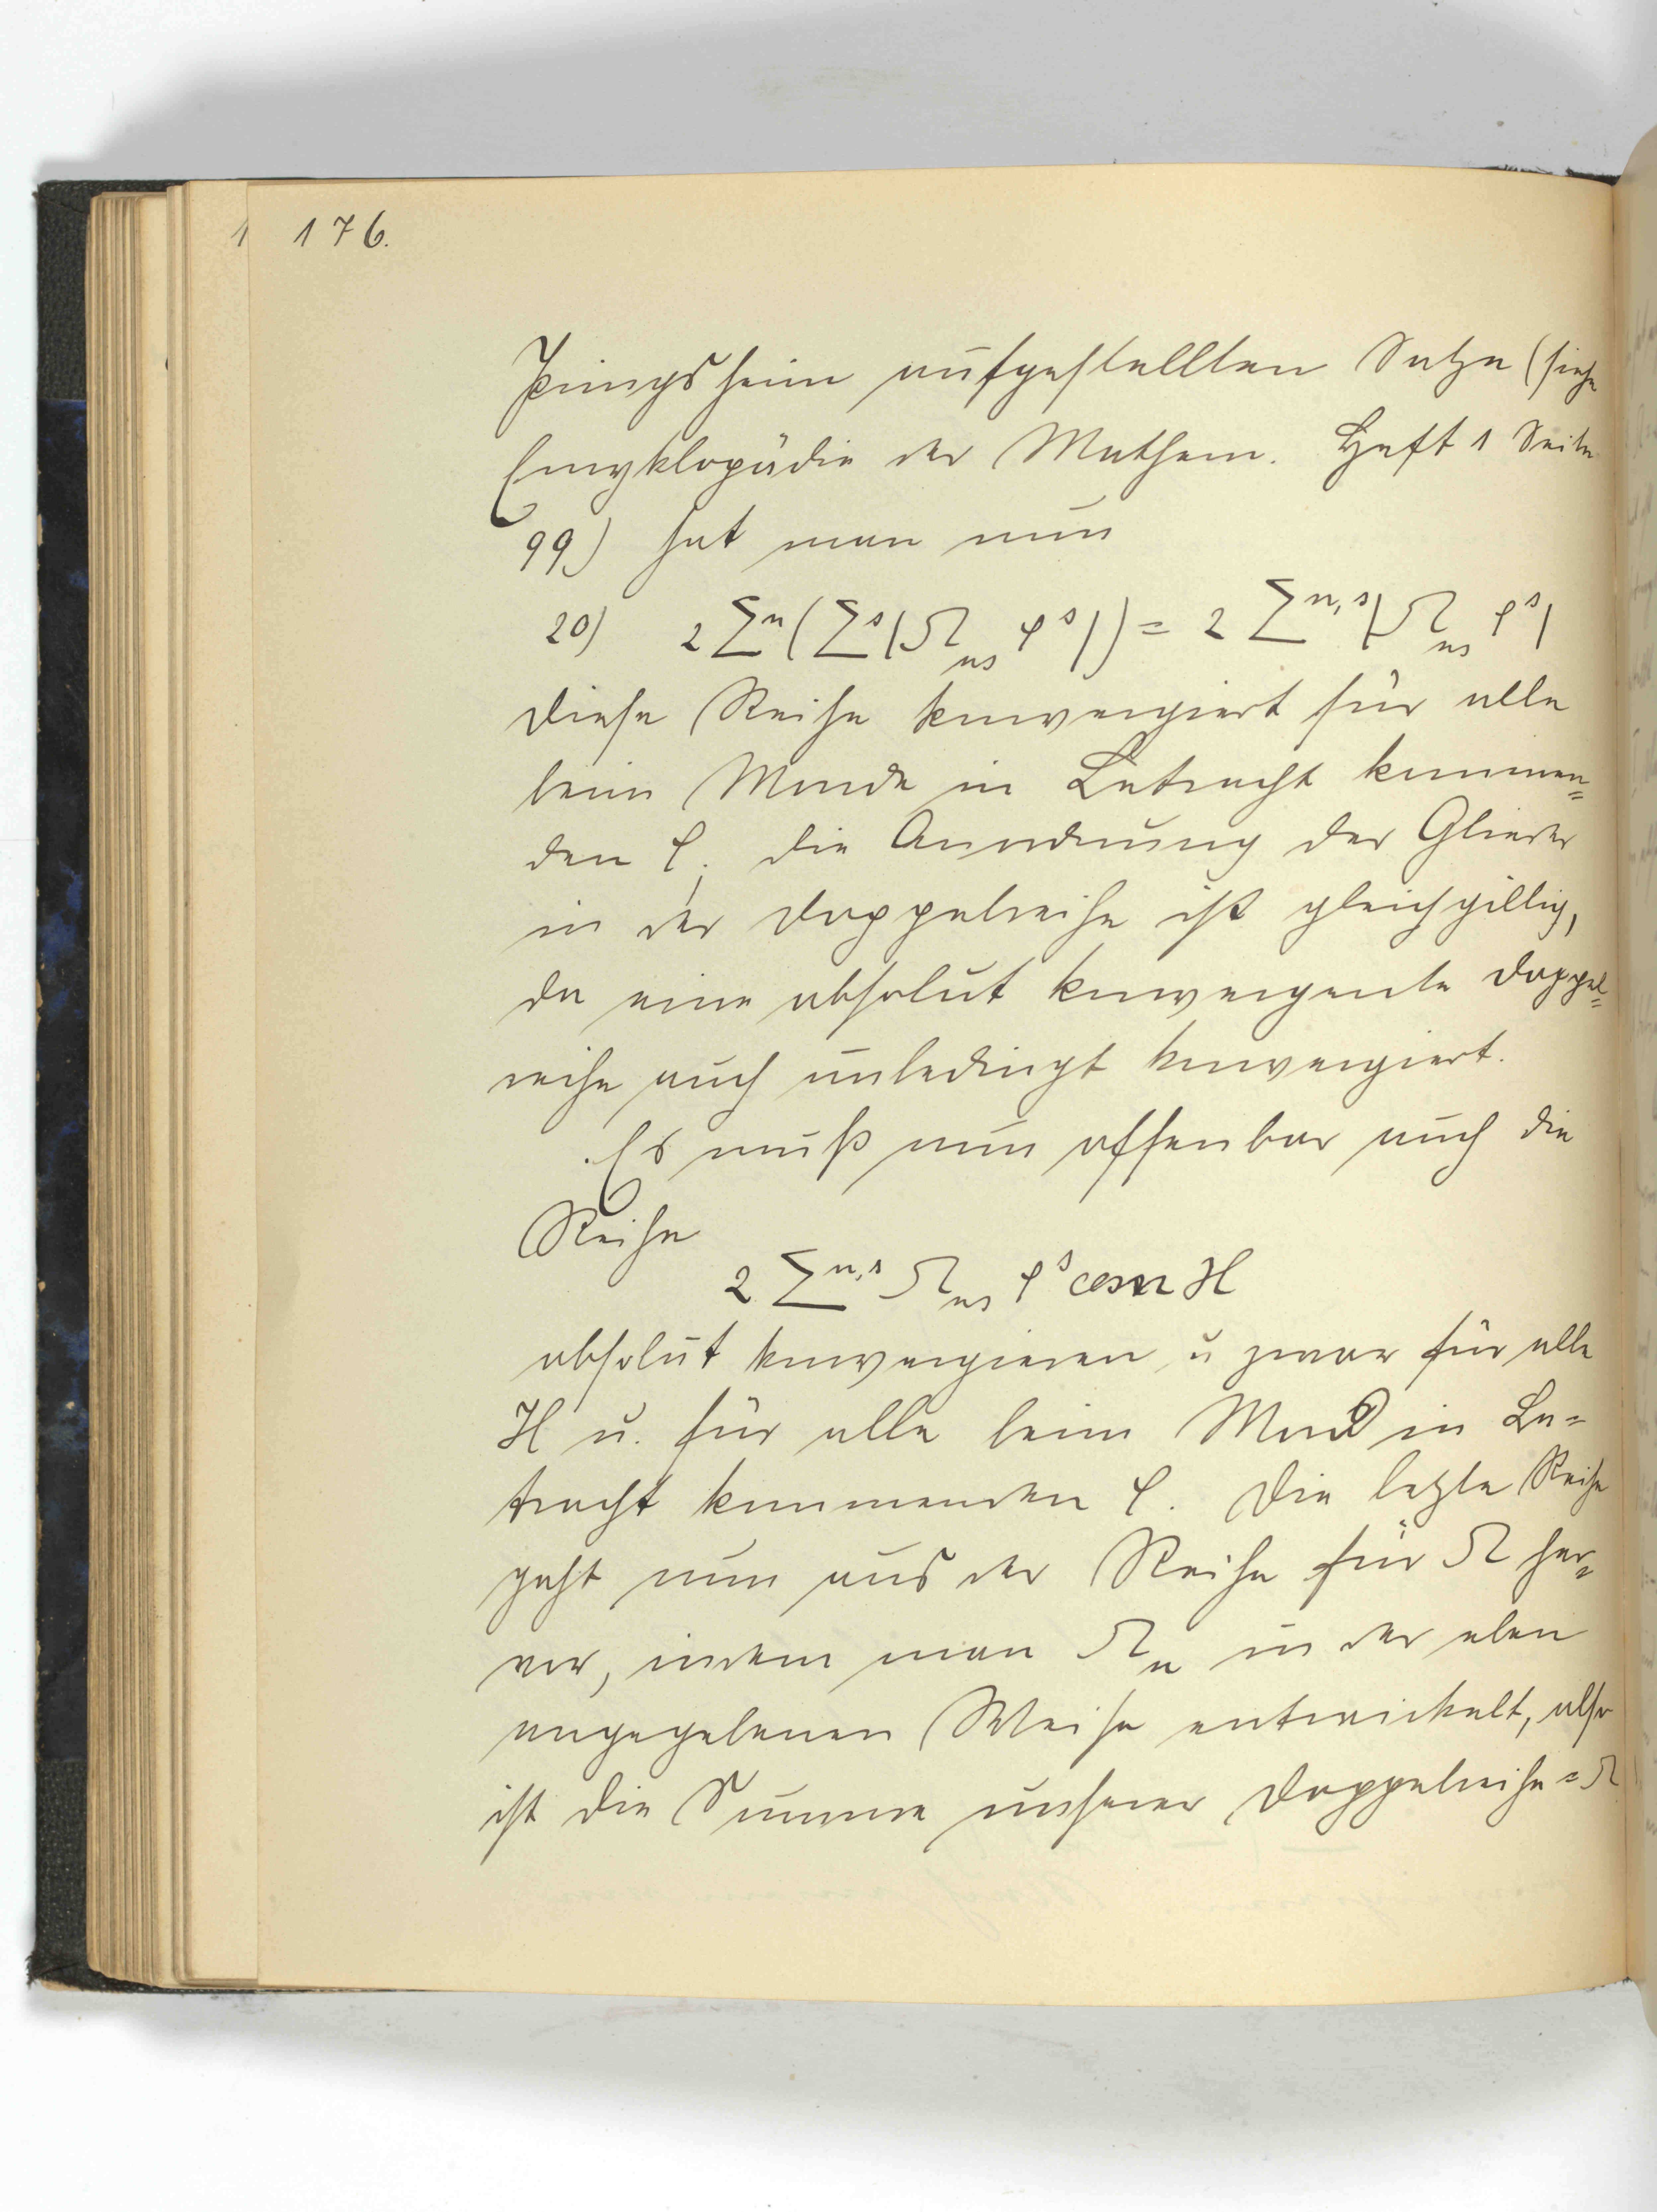 176.
Pringsheim aufgestellten Satze (siehe
Encyklopädie der Mathem. Heft 1 Seite
99) hat man nun
20) 2 Σⁿ (Σˢ |Ω_ns ρˢ|) = 2 Σⁿ,ˢ |Ω_ns ρˢ|
Diese Reihe konvergiert für alle
beim Monde in Betracht kommen=
den ρ; die Anordnung der Glieder
in der Doppelreihe ist gleichgiltig,
da eine absolut konvergente Doppel=
reihe auch unbedingt konvergiert.
Es muß nun offenbar auch die
Reihe
2 Σⁿ,ˢ Ω_ns ρˢ cos n H
absolut konvergieren u zwar für alle
H u. für alle beim Mond in Be=
tracht kommenden ρ. Die letzte Reihe
geht nun aus der Reihe für Ω her=
vor, indem man Ω_n in der oben
angegebenen Weise entwickelt, also
ist die Summe unserer Doppelreihe = Ω